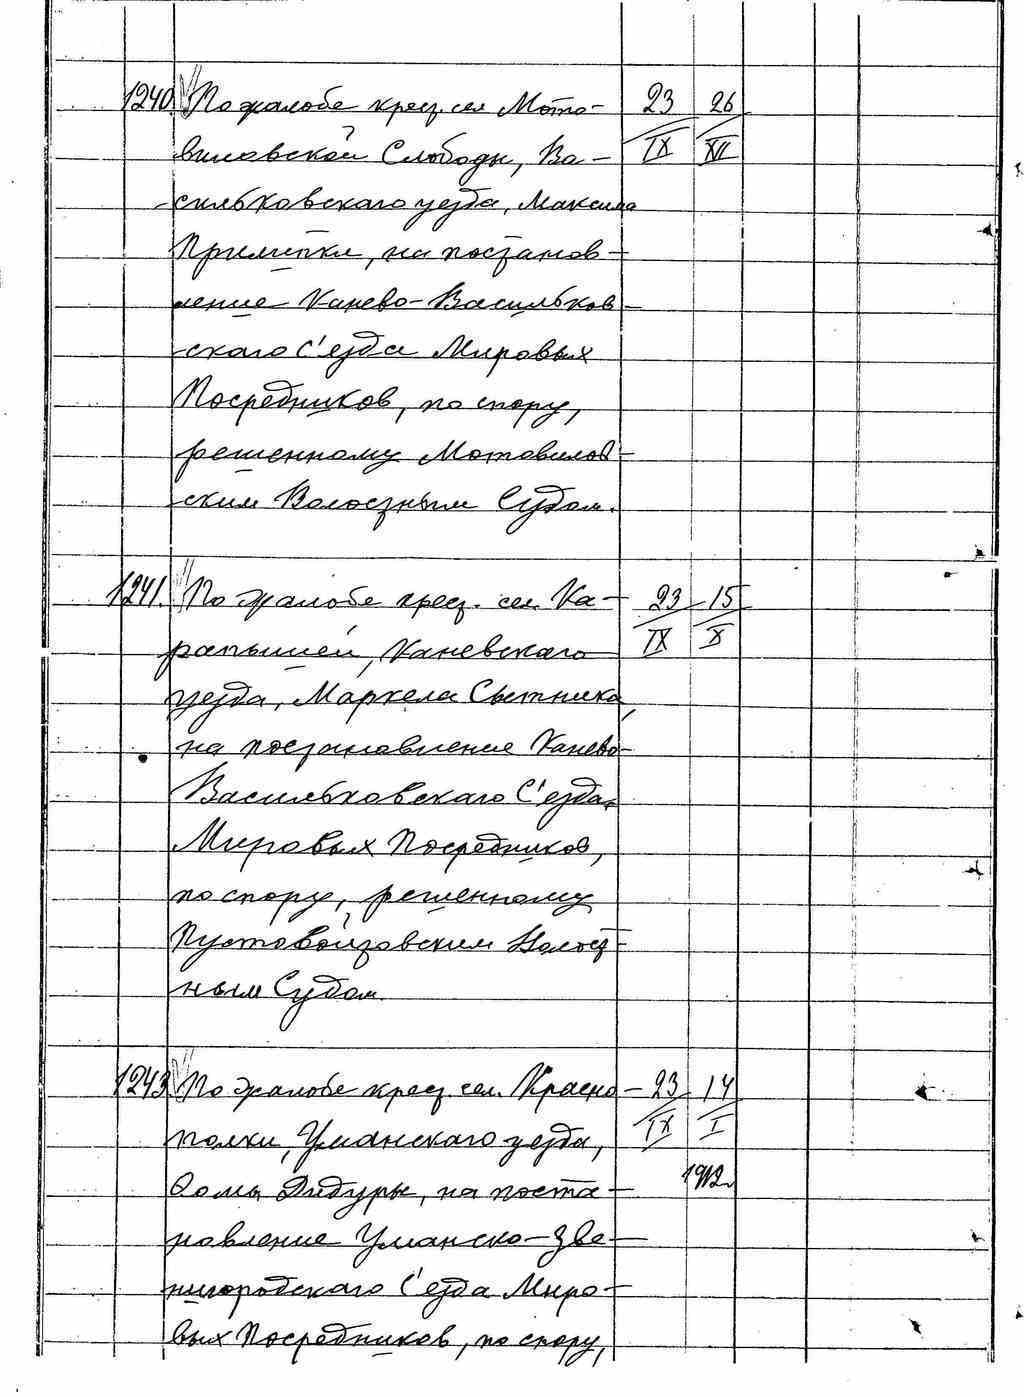 1240. По жалобе крест. сел. Мото- 23 26
виловской Слободы, Ва- IX XII
сильковскаго уезда, Максима
Примепки, на постанов-
ление Канево-Васильков-
скаго С'езда Мировых
Посредников, по спору,
решенному Мотовилов-
ским Волостным Судом.
1241. По жалобе крест. сел. Ка- 23 15
рапышей, Каневскаго IX X
уезда, Маркела Сытника,
на постановление Канево-
Васильковскаго С'езда
Мировых Посредников,
по спору, решенному
Пустовойтовским Волост-
ным Судом.
1243. По жалобе крест. сел. Красно- 23 14
полки, Уманскаго уезда, IX I
Фомы Дидуры, на поста- 1912
новление Уманско-Зве-
нигородскаго С'езда Миро-
вых Посредников, по спору,